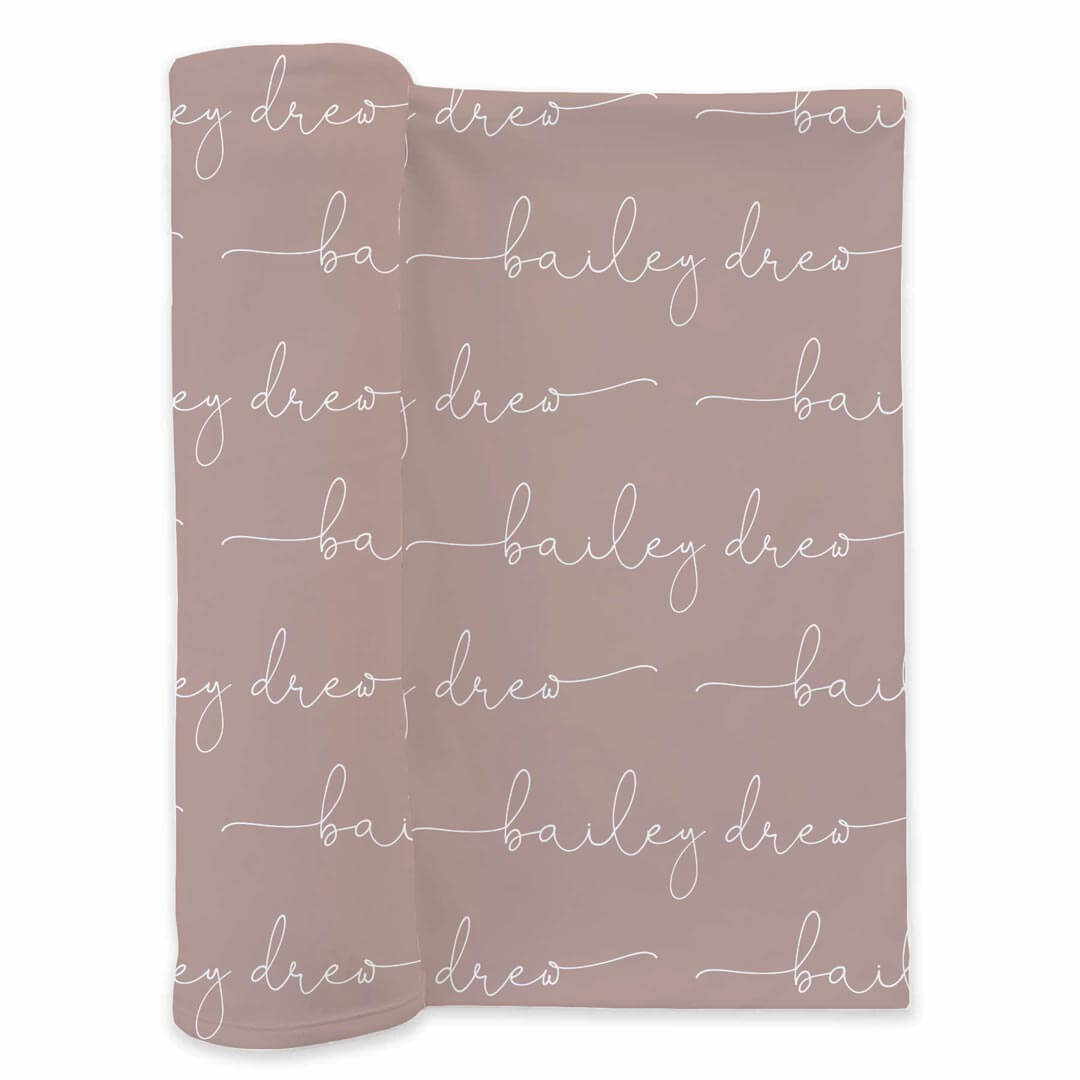 ey drew drew bai
ba bailey drew
ey drew drew bai
ba bailey drew
ey drew drew bai
bai bailey drew
ey drew drew bai